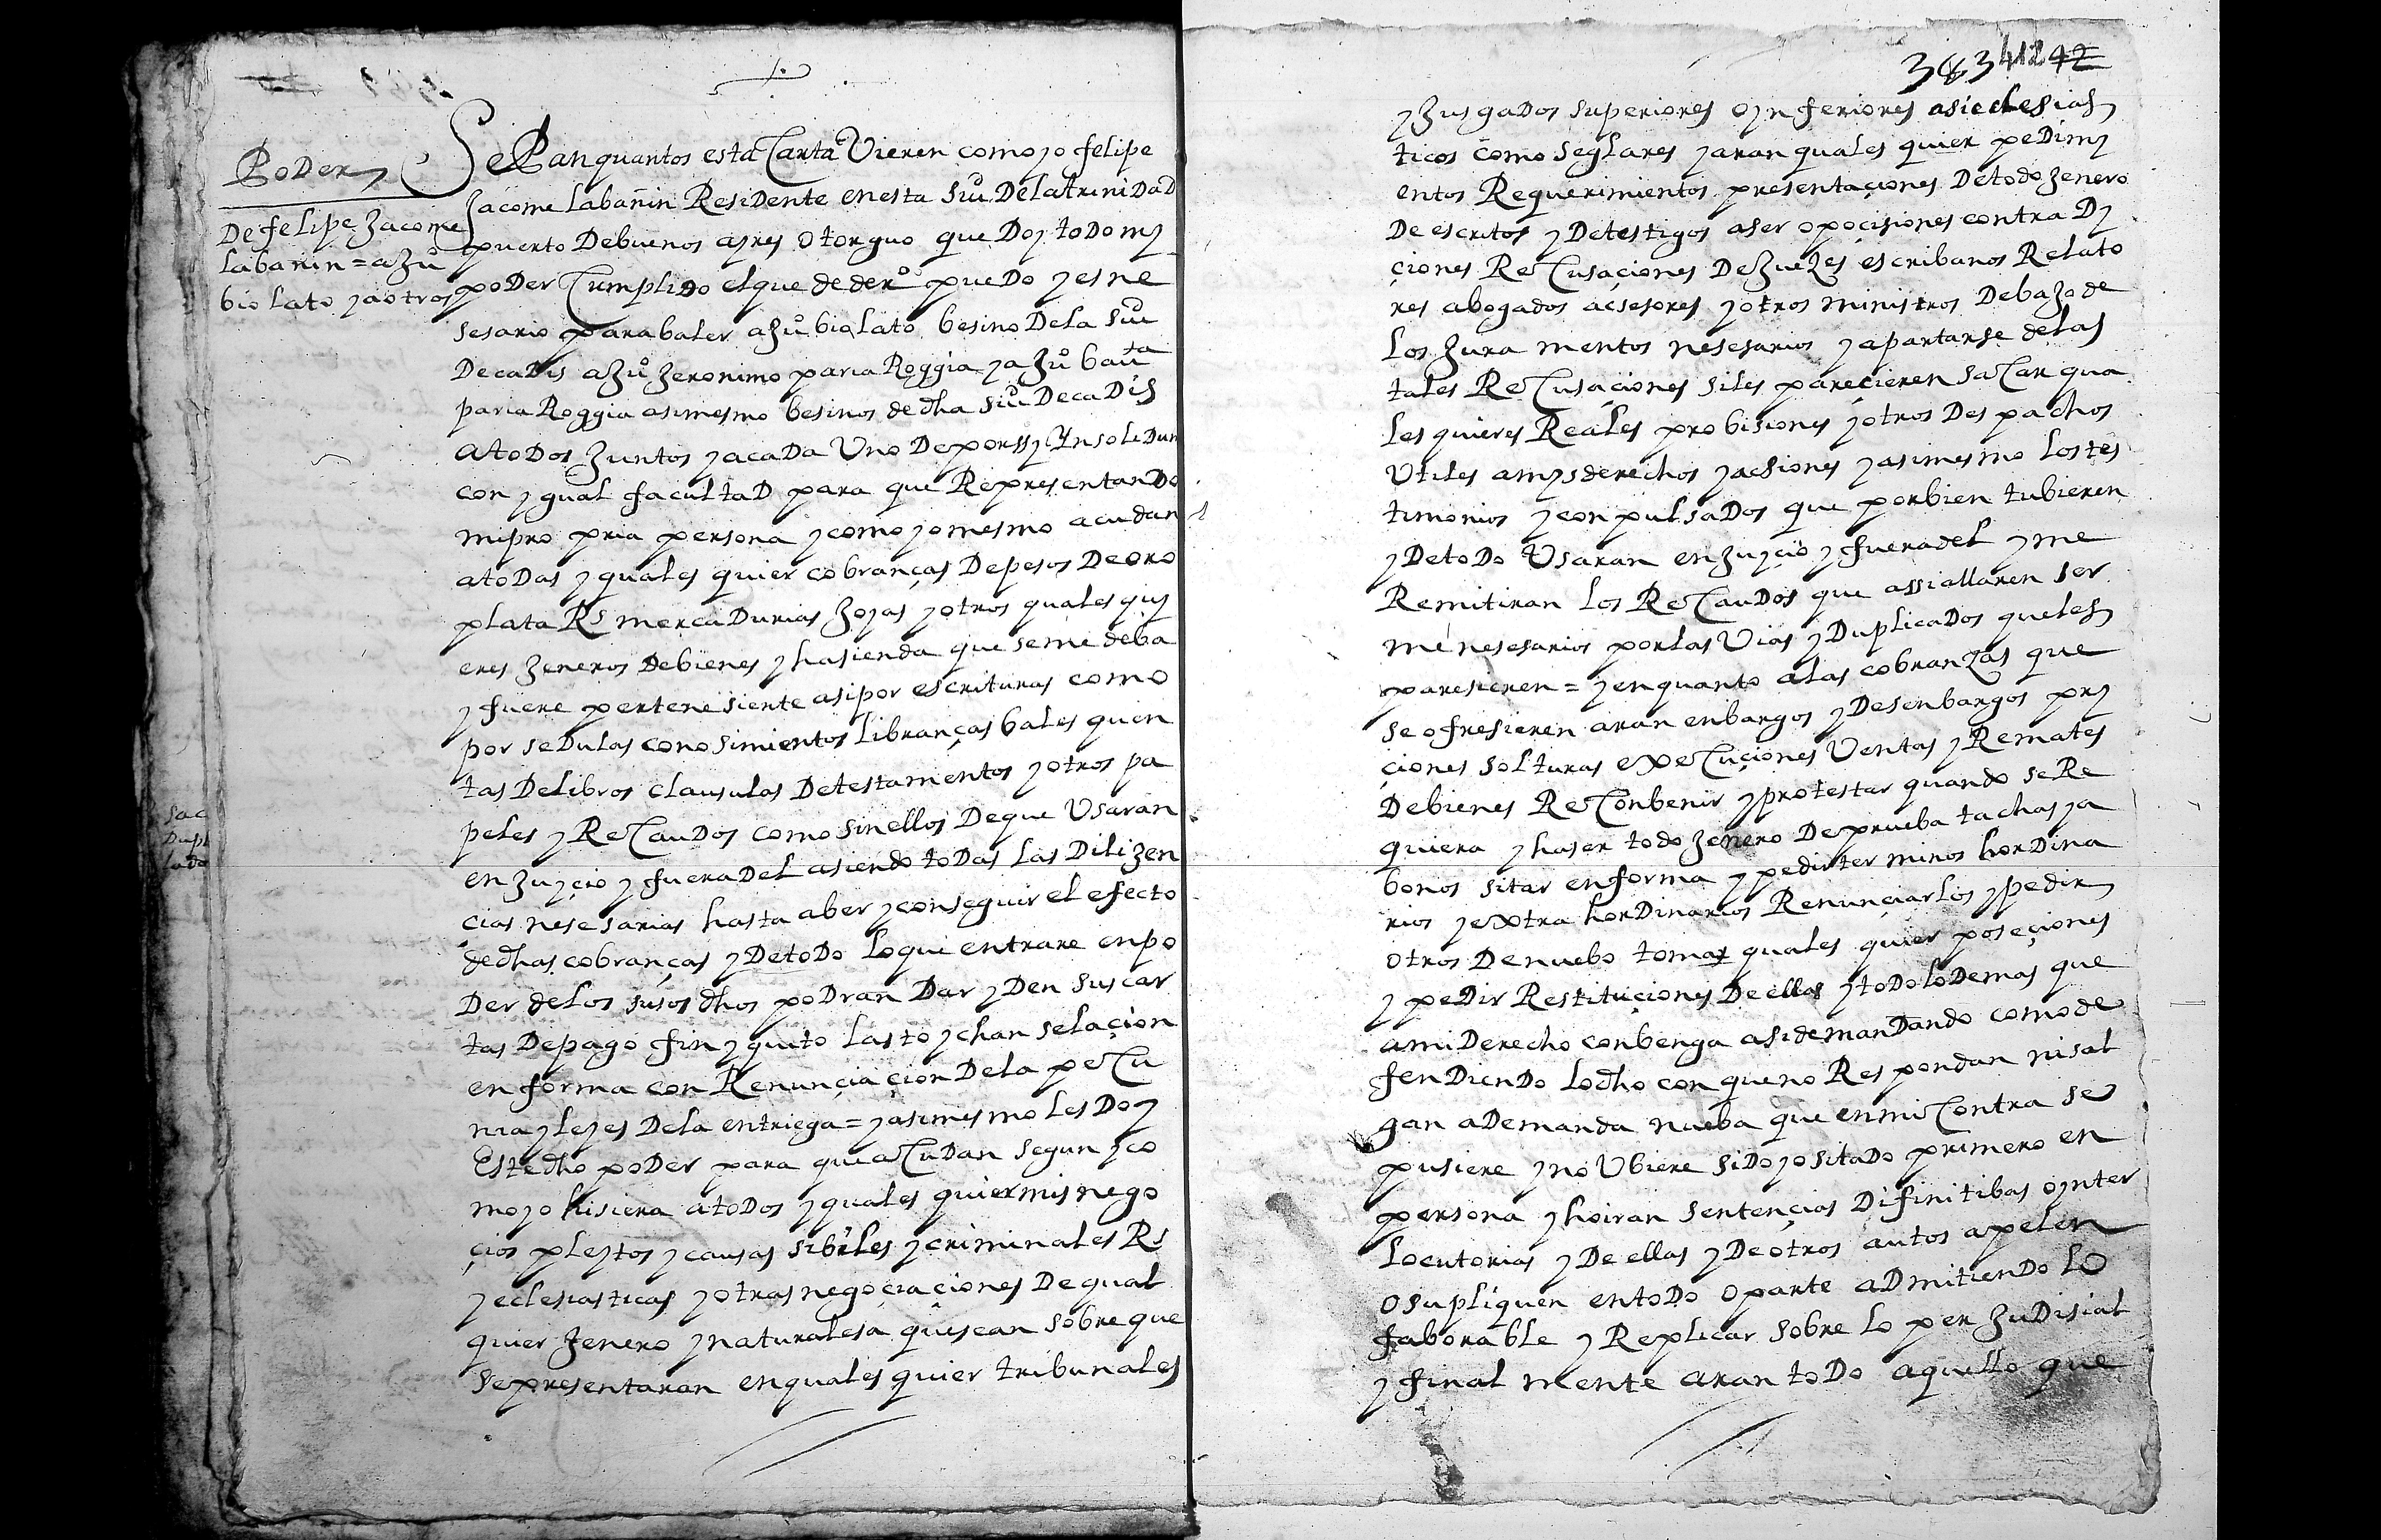 Poder
De felipe Jacome
labañin = a Juº
biolato y a otros
Sac
Dupl
lado
Sepan quantos esta Carta Vieren como yo felipe
Jacome labañin Residente en esta Siud De la trinidad
puerto De buenos ayres otorguo que Doy todo my
poder Cumplido el que de derº puedo y es ne
sesario para baler a Juº biolato besino De la Siud
De cadis a Juº Jeronimo paria Roggia y a Juº bauta
paria Roggia asimesmo besinos de dha Siud De cadis
a todos Juntos y a cada Uno De por ssy Ynsolidun
con ygual facultad para que Representando
mi propria persona y como yo mesmo acudan
a todas y quales quier cobranças De pesos De oro
plata Rs mercadurias Joyas y otros quales quy
eres Jeneros De bienes y hasienda que se me deba
y fuere pertenesiente asi por escrituras como
por sedulas conosimientos libranças bales quen
tas De libros clausulas De testamentos y otros pa
peles y ReCaudos como sin ellos De que Usaran
en Juyçio y fuera Del asiendo todas las Dilijen
çias nesesarias hasta aber y conseguir el efecto
de dhas cobranças y De todo lo que entrare en po
der de los susos dhos podran Dar y Den sus car
tas De pago fin y quito lasto y chanselaçion
en forma con Renunçiaçion De la peCu
nia y leyes De la entriega = y asimesmo les Doy
Este dho poder para que aCudan segun y co
mo yo hisiera a todos y quales quier mis nego
çios pleytos y causas sibiles y criminales Rs
y eclesiasticas y otras negoçiaçiones De qual
quier Jenero y naturalesa que sean sobre que
se presentaran en quales quier tribunales
383 412 42
y Jusgados superiores o ynferiores asi eclesias
ticos como seglares y aran quales quier pedimy
entos Requerimientos presentaçiones De todo Jenero
De escritos y De testigos aser opoçisiones contra Dy
çiones ReCusaçiones De Juezes escribanos Relato
res abogados acsesores y otros ministros Debajo de
los Juramentos nesesarios y apartarse de las
tales ReCusaçiones si les pareçieren saCar qua
les quieres Reales probisiones y otros Despachos
Utiles a mys derechos y acsiones y asimesmo los tes
timonios y conpulsados que por bien tubieren
y De todo Usaran en Juyçio y fuera del y me
Remitiran los ReCaudos que assi allaren ser
me nesesarios por las Vias y Duplicados que les
paresieren = y en quanto a las cobranzas que
se ofresieren aran enbargos y Desenbargos pry
çiones solturas exeCuçiones Ventas y Remates
De bienes ReConbenir y protestar quando se Re
quiera y haser todo Jenero De prueba tachas y a
bonos sitar en forma y pedir terminos hordina
rios y extra hordinarios Renunçiarlos y pedir
otros De nuebo tomar quales quier poseçiones
y pedir Restituçiones De ellas y todo lo Demas que
a mi Derecho conbenga asi demandando como de
fendiendo lo dho con que no Respondan ni sal
gan a Demanda nueba que en mi Contra se
pusiere y no Ubiere sido yo sitado primero en
persona y hoiran sentençias Difinitibas o ynter
locutorias y De ellas y De otros autos apelen
o supliquen en todo o parte admitiendo lo
faborable y Replicar sobre lo perJudisial
y finalmente aran todo aquello que